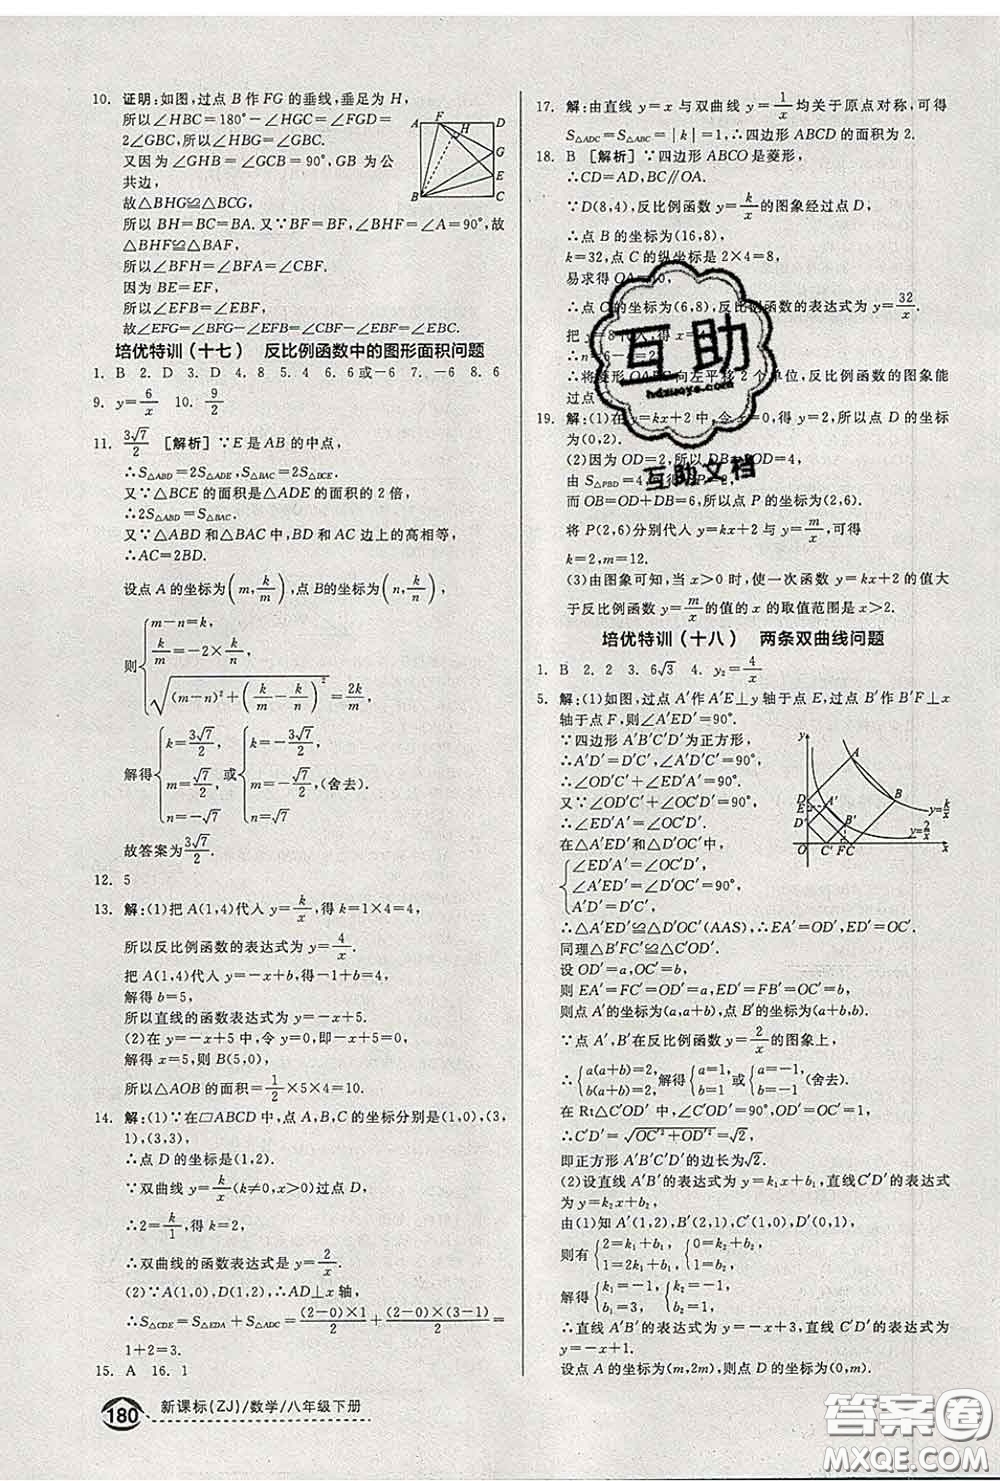 10. 证明:如图,过点 B 作 FG 的垂线,垂足为 H,
所以∠HBC=180°-∠HGC=∠FGD=
2∠GBC,所以∠HBG=∠GBC.
又因为∠GHB=∠GCB=90°,GB 为公
共边,
故△BHG≌△BCG,
所以 BH=BC=BA.又∵BF=BF,∠BHF=∠A=90°,故
△BHF≌△BAF,
所以∠BFH=∠BFA=∠FBC.
因为 BE=EF,
所以∠EFB=∠EBF,
故∠EFG=∠BFG-∠EFB=∠FBC-∠EBF=∠EBC.
A F D H G E B C
培优特训(十七) 反比例函数中的图形面积问题
1. B 2. D 3. D 4. 8 5. 4 6. 6或-6 7. -6 8. 6
9. y=6/x 10. 9/2
11. 3√7/2 [解析]∵E 是 AB 的中点,
∴S△ABD=2S△ADE,S△BAC=2S△BCE.
又∵△BCE 的面积是△ADE 的面积的 2 倍,
∴2S△ABD=S△BAC.
又∵△ABD 和△BAC 中,BD 和 AC 边上的高相等,
∴AC=2BD.
设点 A 的坐标为(m,k/m),点 B 的坐标为(n,k/n),
则{m-n=k, k/m=-2×k/n, √((m-n)²+(k/m-k/n)²)=2k/m
解得{k=3√7/2, m=√7/2, n=-√7 或{k=-3√7/2, m=-√7/2, n=√7 (舍去).
故答案为3√7/2.
12. 5
13. 解:(1)把 A(1,4)代人 y=k/x,得 k=1×4=4,
所以反比例函数的表达式为 y=4/x.
把 A(1,4)代人 y=-x+b,得-1+b=4,
解得 b=5,
所以直线的函数表达式为 y=-x+5.
(2)在 y=-x+5 中,令 y=0,得-x+5=0,
解得 x=5,则 B(5,0),
所以△AOB 的面积=1/2×5×4=10.
14. 解:(1)∵在▱ABCD 中,点 A,B,C 的坐标分别是(1,0),(3,
1),(3,3),
∴点 D 的坐标是(1,2).
∵双曲线 y=k/x(k≠0,x>0)过点 D,
∴2=k/1,得 k=2,
∴双曲线的函数表达式是 y=2/x.
(2)∵A(1,0),D(1,2),∴AD⊥x 轴,
∴S△CDE=S△EDA+S△ADC=(2-0)×1/2+(2-0)×(3-1)/2=
1+2=3.
15. A 16. 1
180 新课标(ZJ)/数学/八年级下册
17. 解:由直线 y=x 与双曲线 y=1/x 均关于原点对称,可得
S△ADC=S△ABC=|k|=1,∴四边形 ABCD 的面积为 2.
18. B [解析]∵四边形 ABCO 是菱形,
∴CD=AD,BC∥OA.
∵D(8,4),反比例函数 y=k/x 的图象经过点 D,
∴点 B 的坐标为(16,8),
k=32,点 C 的纵坐标是 2×4=8,
易求得 OA=10,
∴点 C 的坐标为(6,8),反比例函数的表达式为 y=32/x.
把 y=8代人
∴将菱形 OABC 向左平移 2 个单位,反比例函数的图象能
过点
19. 解:(1)在 y=kx+2 中,令 x=0,得 y=2,所以点 D 的坐标
为(0,2).
(2)因为 OD=2,所以 BD=2OD=4,
由 S△PBD=4,可得
而 OB=OD+DB=6,所以点 P 的坐标为(2,6).
将 P(2,6)分别代人 y=kx+2 与 y=m/x,可得
k=2,m=12.
(3)由图象可知,当 x>0 时,使一次函数 y=kx+2 的值大
于反比例函数 y=m/x 的值的 x 的取值范围是 x>2.
互助
hdzuoye.com
互助文档
培优特训(十八) 两条双曲线问题
1. B 2. 2 3. 6√3 4. y₂=4/x
5. 解:(1)如图,过点 A′作 A′E⊥y 轴于点 E,过点 B′作 B′F⊥x
轴于点 F,则∠A′ED′=90°.
∵四边形 A′B′C′D′为正方形,
∴A′D′=D′C′,∠A′D′C′=90°,
∴∠OD′C′+∠ED′A′=90°.
又∵∠OD′C′+∠OC′D′=90°,
∴∠ED′A′=∠OC′D′.
在△A′ED′和△D′OC′中,
{∠ED′A′=∠OC′D′, ∠A′ED′=∠D′OC′, A′D′=D′C′,
∴△A′ED′≌△D′OC′(AAS),∴EA′=OD′,ED′=OC′.
同理△B′FC′≌△C′OD′.
设 OD′=a,OC′=b,
则 EA′=FC′=OD′=a,ED′=FB′=OC′=b,
则点 A′的坐标为(a,a+b),点 B′的坐标为(a+b,b).
∵点 A′,B′在反比例函数 y=2/x 的图象上,
∴{a(a+b)=2, b(a+b)=2,解得{a=1, b=1 或{a=-1, b=-1 (舍去).
在 Rt△C′OD′中,∠C′OD′=90°,OD′=OC′=1,
∴C′D′=√(OC′²+OD′²)=√2,
即正方形 A′B′C′D′的边长为√2.
(2)设直线 A′B′的表达式为 y=k₁x+b₁,直线 C′D′的表达式
为 y=k₂x+b₂,
由(1)知 A′(1,2),B′(2,1),C′(1,0),D′(0,1),
则有{2=k₁+b₁, 1=2k₁+b₁, {0=k₂+b₂, 1=b₂,
解得{k₁=-1, b₁=3, {k₂=-1, b₂=1,
∴直线 A′B′的表达式为 y=-x+3,直线 C′D′的表达式为
设点 A 的坐标为(m,2m),点 D 的坐标为(0,m).
y A D B E A′ y=k/x D′ B′ y=2/x O C′ F C x
答案圈
MXQE.COM